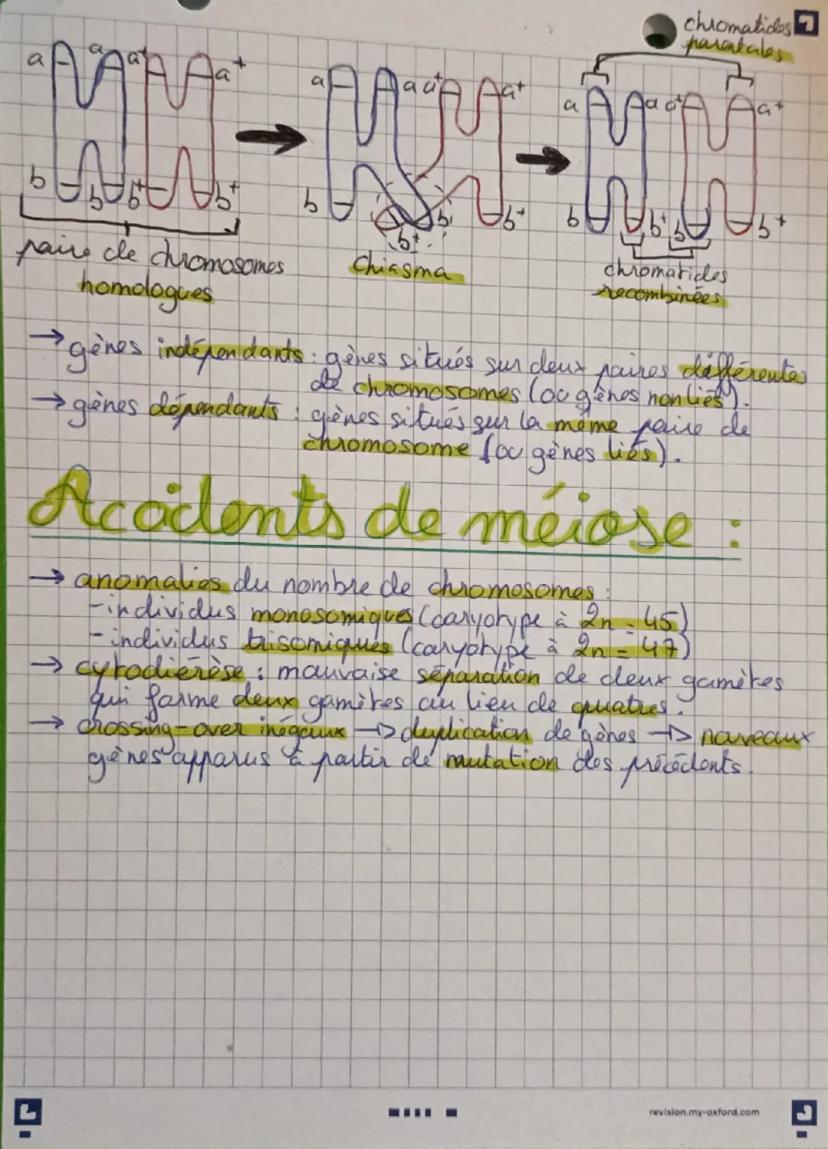 chromatides
parentales
a a a+ a+
a a a+ a+
a a a+ a+
b b b+ b+
b b+ b b+
b b+ b b+
paire de chromosomes
homologues
Chiasma
chromatides
recombinées
→ gènes indépendants : gènes situés sur deux paires différentes
de chromosomes (ou gènes non liés).
→ gènes dépendants : gènes situés sur la même paire de
chromosome (ou gènes liés).
Accidents de méiose :
→ anomalies du nombre de chromosomes :
- individus monosomiques (caryotype à 2n = 45)
- individus trisomiques (caryotype à 2n = 47)
→ cytodiérèse : mauvaise séparation de deux gamètes
qui forme deux gamètes au lieu de quatres.
→ crossing-over inégaux → duplication de gènes → nouveaux
gènes apparus à partir de mutation des précédents.
revision.my-oxford.com